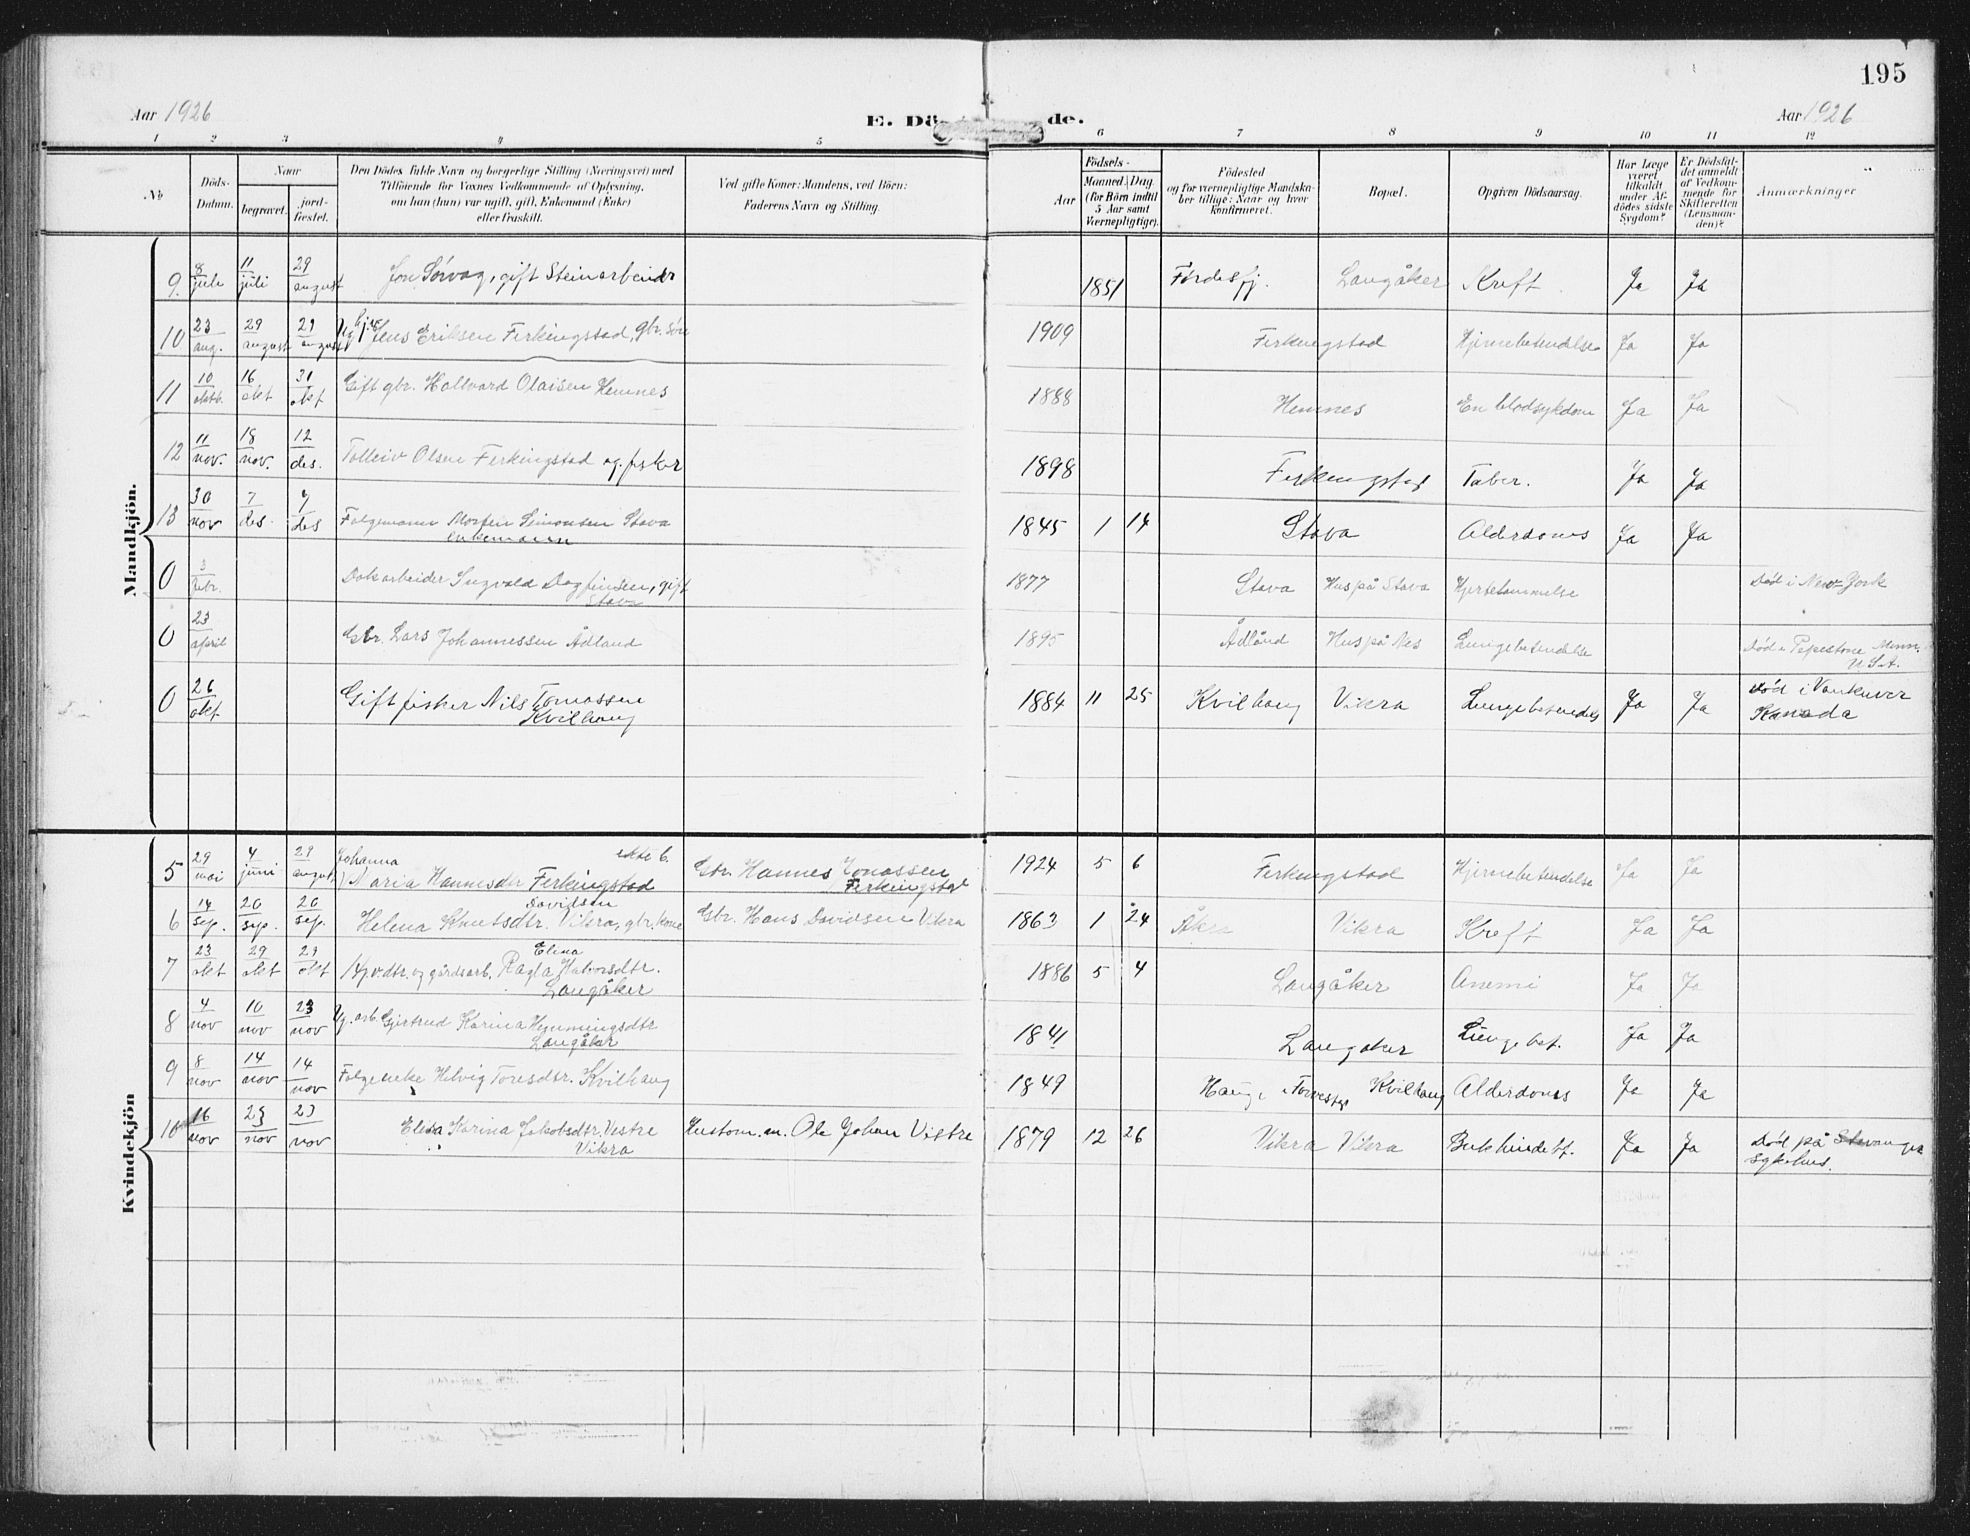 195
Aar 1926
E. Dö de.
Aar 1926
1 2 3 4 5 6 7 8 9 10 11 12
No
Döds-Datum.
Naar
begravet.
jord-fæstet.
Den Dödes fulde Navn og borgerlige Stilling (Næringsvei) med
Tilföiende for Voxnes Vedkommende af Oplysning,
om han (hun) var ugift, gift, Enkemand (Enke)
eller fraskilt.
Ved gifte Koner: Mandens, ved Börn:
Faderens Navn og Stilling.
Födsels-
Aar
Maaned. Dag
(for Börn indtil
5 Aar samt
Værnepligtige).
Födested
og for værnepligtige Mandska-
ber tillige: Naar og hvor
konfirmeret.
Bopæl.
Opgiven Dödsaarsag.
Har Læge
været
tilkaldt
under Af-
dödes sidste
Sygdom?
Er Dödsfal-
det anmeldt
af Vedkom-
mende for
Skifteretten
(Lensman-
den)?
Anmærkninger
Mandkjön.
9. 8/juli 11/juli 29/august Jon Sörvag, gift Steinarbeider 1851 Fördesfj. Langåker Kreft Ja Ja
10 23/aug. 29/august 29/august Jens Eriksen Ferkingstad, gbr. sön 1909 Ferkingstad Hjernebetendelse Ja Ja
11 10/oktb. 16/okt 31/okt Gift gbr. Hallvard Olaisen Hemnes 1888 Hemnes En blodsykdom Ja Ja
12 11/nov. 18/nov. 12/des. Tolleiv Olsen Ferkingstad og. fisker 1898 Ferkingstad Tuber. Ja Ja
13 30/nov 7/des. 7/des Folgemann Morten Simonsen Stava
enkemann 1845 1 14 Stava Alderdoms Ja Ja
0 3/febr. Dokarbeider Ingvald Dagfinsen, gift
Stava 1877 Stava Hus på Stava Hjertelammelse Död i New-York
0 23/april Gbr. Lars Johannessen Ådland 1895 Ådland Hus på Nes Lungebetendelse Död i Pipestone Minn.
U.S.A.
0 26/okt Gift fisker Nils Tomassen
Kvilhaug 1884 11 25 Kvilhaug Vikra Lungebetendels Ja Ja död i Vankuver
Kanada
Kvindekjön
5 29/mai 4/juni 29/august Johanna ekte b.
Maria Hannesdtr Ferkingstad Gbr. Hannes Jonassen
Ferkingstad 1924 5 6 Ferkingstad Hjernebetendelse Ja Ja
6 14/sep. 20/sep. 20/sep. Davidsen
Helena Knutsdtr. Vikra, gbr. kone Gbr. Hans Davidsen Vikra 1863 1 24 Åkra Vikra Kreft Ja Ja
7 23/okt 29/okt 29/okt Elina
og gårdsarb. Ragla Halvorsdtr.
Langåker 1886 5 4 Langåker Anemi Ja Ja
8 4/nov 10/nov 23/nov Ug. arb. Gjertrud Karina Hemmingsdtr
Langåker 1841 Langåker Lungebet. Ja Ja
9 8/nov 14/nov 14/nov Folgeenke Helvig Toresdtr. Kvilhaug 1849 Hauge i Torvestad Kvilhaug Alderdoms Ja Ja
10 16/nov 23/nov 23/nov Elena Karina Jakobsdtr. Vestre
Vikra Hustom. m. Ole Johan Vestre 1879 12 26 Vikra Vikra Bukhindebt. Ja Ja död på Stavanger
sykehus.